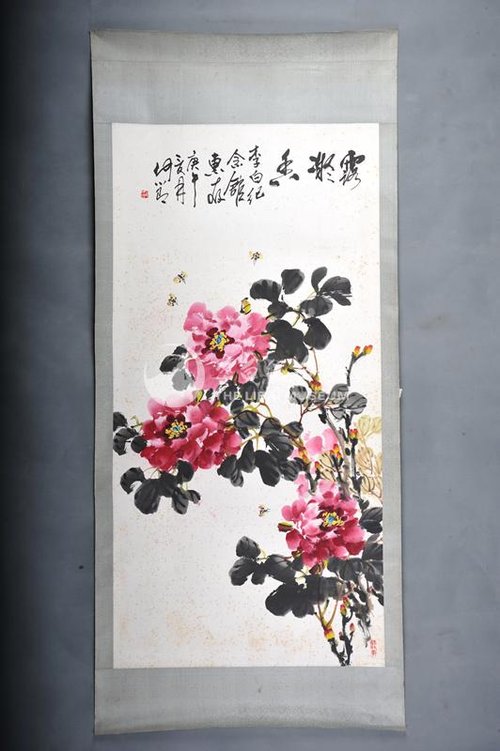 露凝香
李白紀
念館
惠存
庚午
夏月
THE LIBAI MUSEUM